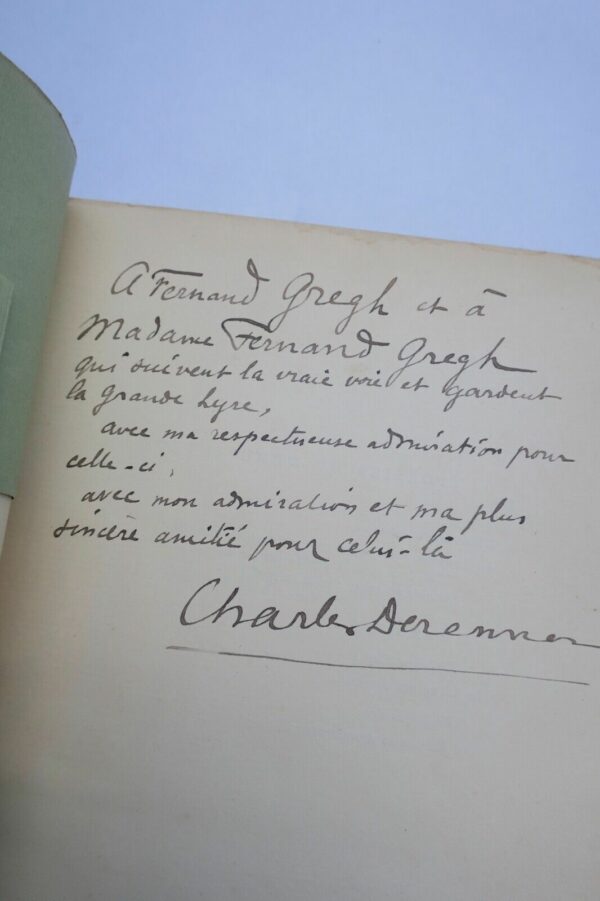 A Fernand Gregh et à
Madame Fernand Gregh
qui suivent la vraie voie et gardent
la grande Lyre,
avec ma respectueuse admiration pour
celle-ci,
avec mon admiration et ma plus
sincère amitié pour celui-là
Charles Derennes